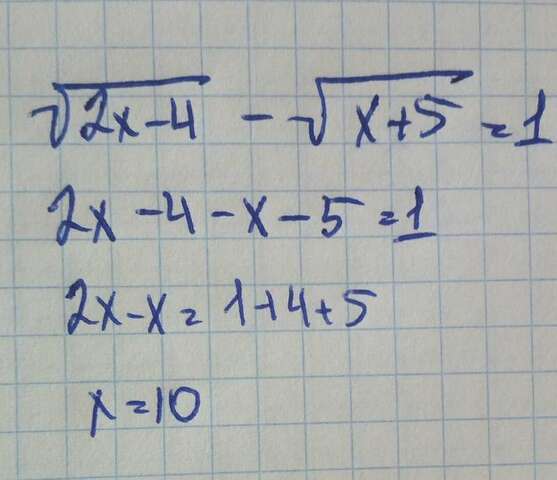 √(2x-4) - √(x+5) = 1
2x - 4 - x - 5 = 1
2x - x = 1+4+5
x = 10